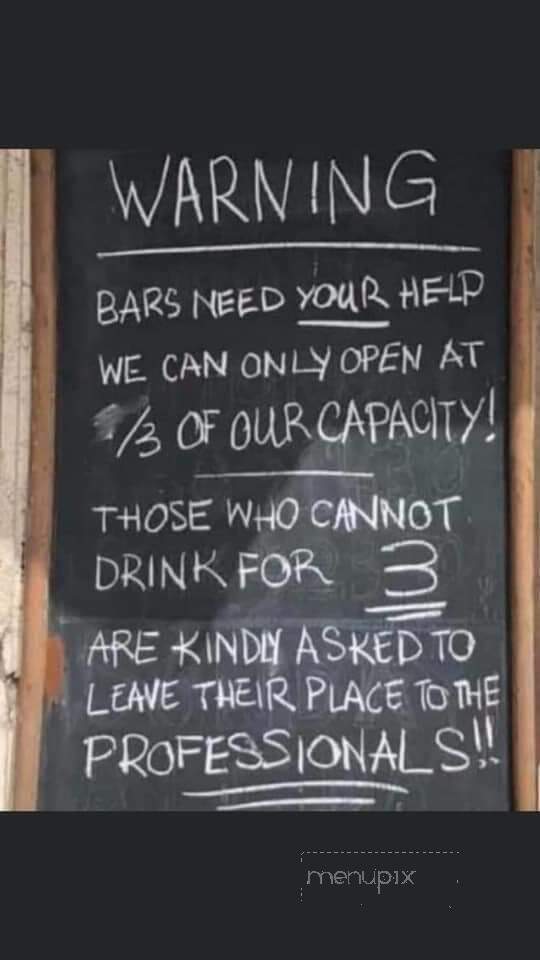 WARNING
BARS NEED YOUR HELP
WE CAN ONLY OPEN AT
/3 OF OUR CAPACITY!
THOSE WHO CANNOT
DRINK FOR 3
ARE KINDLY ASKED TO
LEAVE THEIR PLACE TO THE
PROFESSIONALS!!
menupix